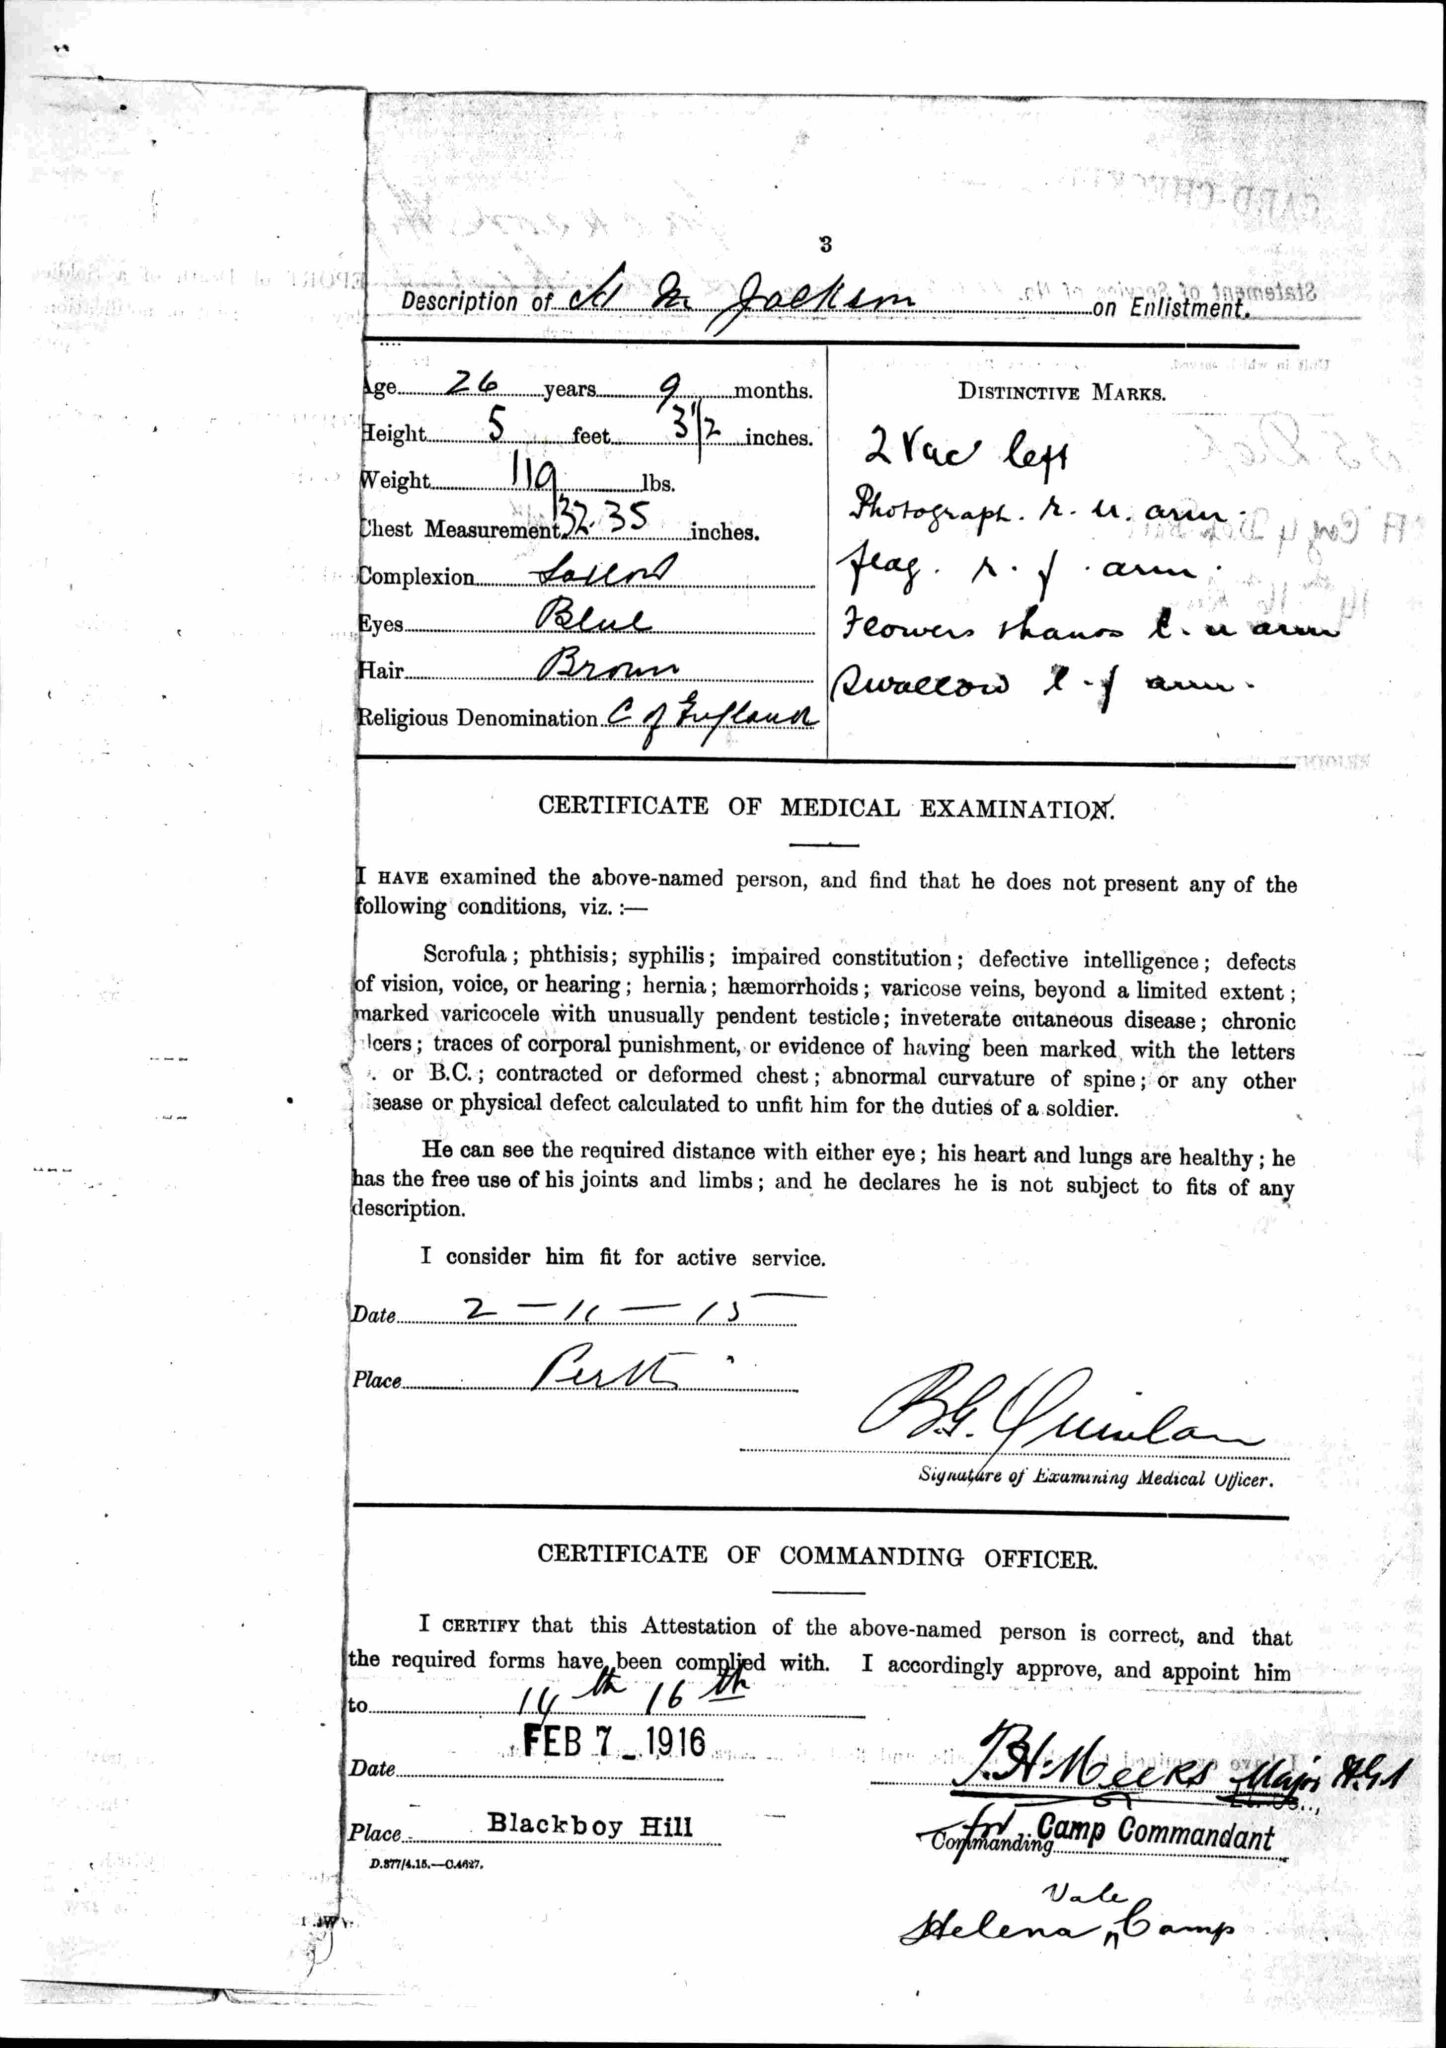 3
Description of M Jackson on Enlistment.
Age 26 years 9 months.
Height 5 feet 3 1/2 inches.
Weight 119 lbs.
Chest Measurement 32. 35 inches.
Complexion Sallow
Eyes Blue
Hair Brown
Religious Denomination C of England
DISTINCTIVE MARKS.
2 Vac left
Photograph. r. u. arm.
flag. r. f. arm.
Flowers l. u arm
Swallow l. f arm.
CERTIFICATE OF MEDICAL EXAMINATION.
I HAVE examined the above-named person, and find that he does not present any of the
following conditions, viz. :—
Scrofula ; phthisis ; syphilis ; impaired constitution ; defective intelligence ; defects
of vision, voice, or hearing ; hernia ; hæmorrhoids ; varicose veins, beyond a limited extent ;
marked varicocele with unusually pendent testicle ; inveterate cutaneous disease ; chronic
lcers ; traces of corporal punishment, or evidence of having been marked with the letters
. or B.C. ; contracted or deformed chest ; abnormal curvature of spine ; or any other
sease or physical defect calculated to unfit him for the duties of a soldier.
He can see the required distance with either eye ; his heart and lungs are healthy ; he
has the free use of his joints and limbs ; and he declares he is not subject to fits of any
description.
I consider him fit for active service.
Date 2 — 11 — 15
Place Perth
B.G. Quinlan
Signature of Examining Medical Officer.
CERTIFICATE OF COMMANDING OFFICER.
I CERTIFY that this Attestation of the above-named person is correct, and that
the required forms have been complied with. I accordingly approve, and appoint him
to 14th 16th
FEB 7 _ 1916
Date
T.H. Meeks Major
Place Blackboy Hill
for Camp Commandant
Commanding
D.877/4.15.—C.4627.
Vale
Helena Camp